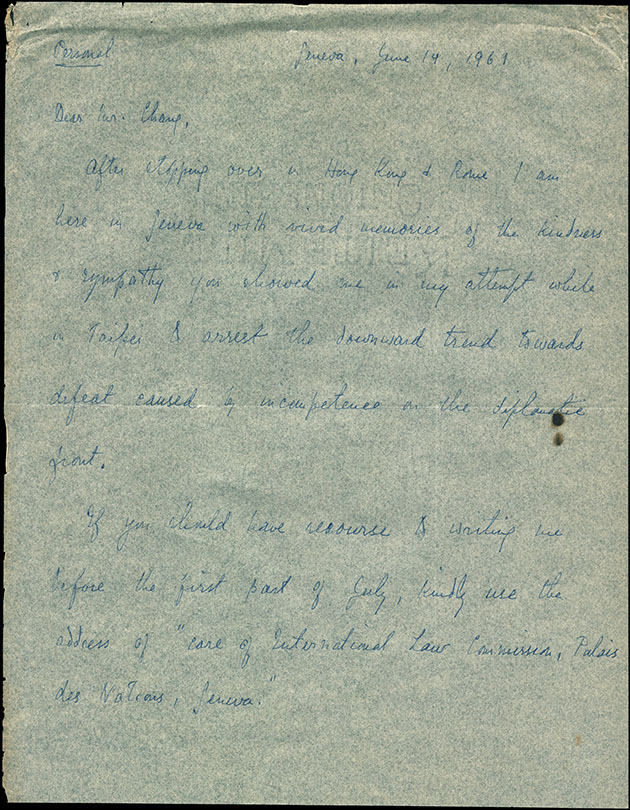 Personal
Geneva, June 14, 1961
Dear Mr. Chang,
After stopping over in Hong Kong & Rome I am
here in Geneva with vivid memories of the kindness
& sympathy you showed me in my attempt while
in Taipei to arrest the downward trend towards
defeat caused by incompetence on the diplomatic
front.
If you should have recourse to writing me
before the first part of July, kindly use the
address of "care of International Law Commission, Palais
des Nations, Geneva."